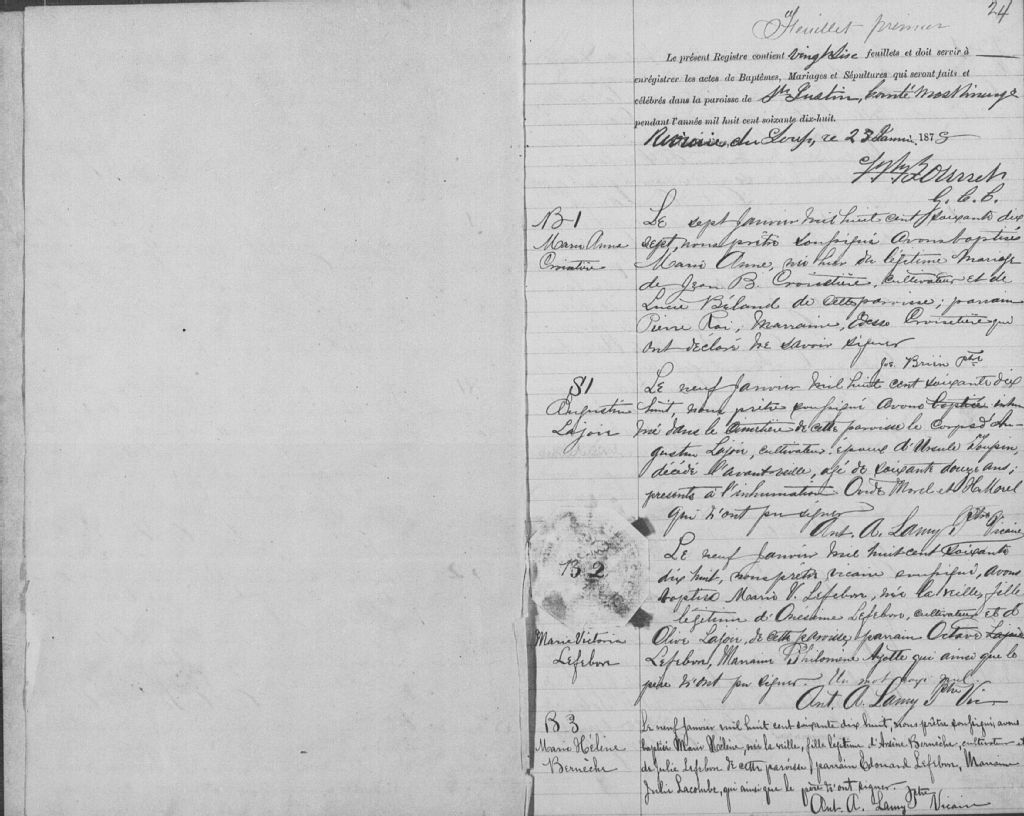 24
Feuillet premier
Le présent Registre contient vingt sixe feuillets et doit servir à
enrégistrer les actes de Baptêmes, Mariages et Sépultures qui seront faits et
célébrés dans la paroisse de St Justin, Comté Maskinongé
pendant l'année mil huit cent soixante dix-huit.
Rivière du Loup, ce 23 Janvi. 1878
G. C. C.
B 1
Marie Anna
Croisetière
Le sept Janvier mil huit cent soixante dix
sept, nous prêtre soussigné avons baptisé
Marie Anne, née hier du légitime mariage
de Jean B. Croisetière, cultivateur et de
Lucie Béland de cette paroisse; parrain
Pierre Roi, Marraine, Croisetière qui
ont déclaré ne savoir signer
Jos. Brien Ptre
S 1
Augustin
Lajoie
Le neuf Janvier mil huit cent soixante dix
huit, nous prêtre soussigné avons baptisé inhu
mé dans le cimetière de cette paroisse le corps d'Au
gustin Lajoie, cultivateur, époux d'Ursule Toupin,
décédé l'avant veille, agé de soixante douze ans;
presents à l'inhumation Ovide Morel et H. Morel
qui n'ont pu signer
Ant. A. Lamy Ptre Vicaire
B 2
Marie Victoria
Lefebvre
Le neuf Janvier mil huit cent soixante
dix huit, nous prêtre vicaire soussigné, avons
baptisé Marie V. Lefebvre, née la veille, fille
légitime d'Onésime Lefebvre, cultivateur et d
Olive Lajoie, de cette paroisse, parrain Octave Lajoie
Lefebvre, Marraine Philomène Ayotte qui ainsi que le
père n'ont pu signer. Un mot rayé nul.
Ant. A. Lamy Ptre Vic
B 3
Marie Hélène
Bernèche
Le neuf Janvier mil huit cent soixante dix huit, nous prêtre soussigné, avons
baptisé Marie Hélène, née la veille, fille légitime d'Arsène Bernèche, cultivateur et
de Julie Lefebvre de cette paroisse, parrain Edouard Lefebvre, Marraine
Julie Lacombe, qui ainsi que le père n'ont signer.
Ant. A. Lamy Ptre Vicaire